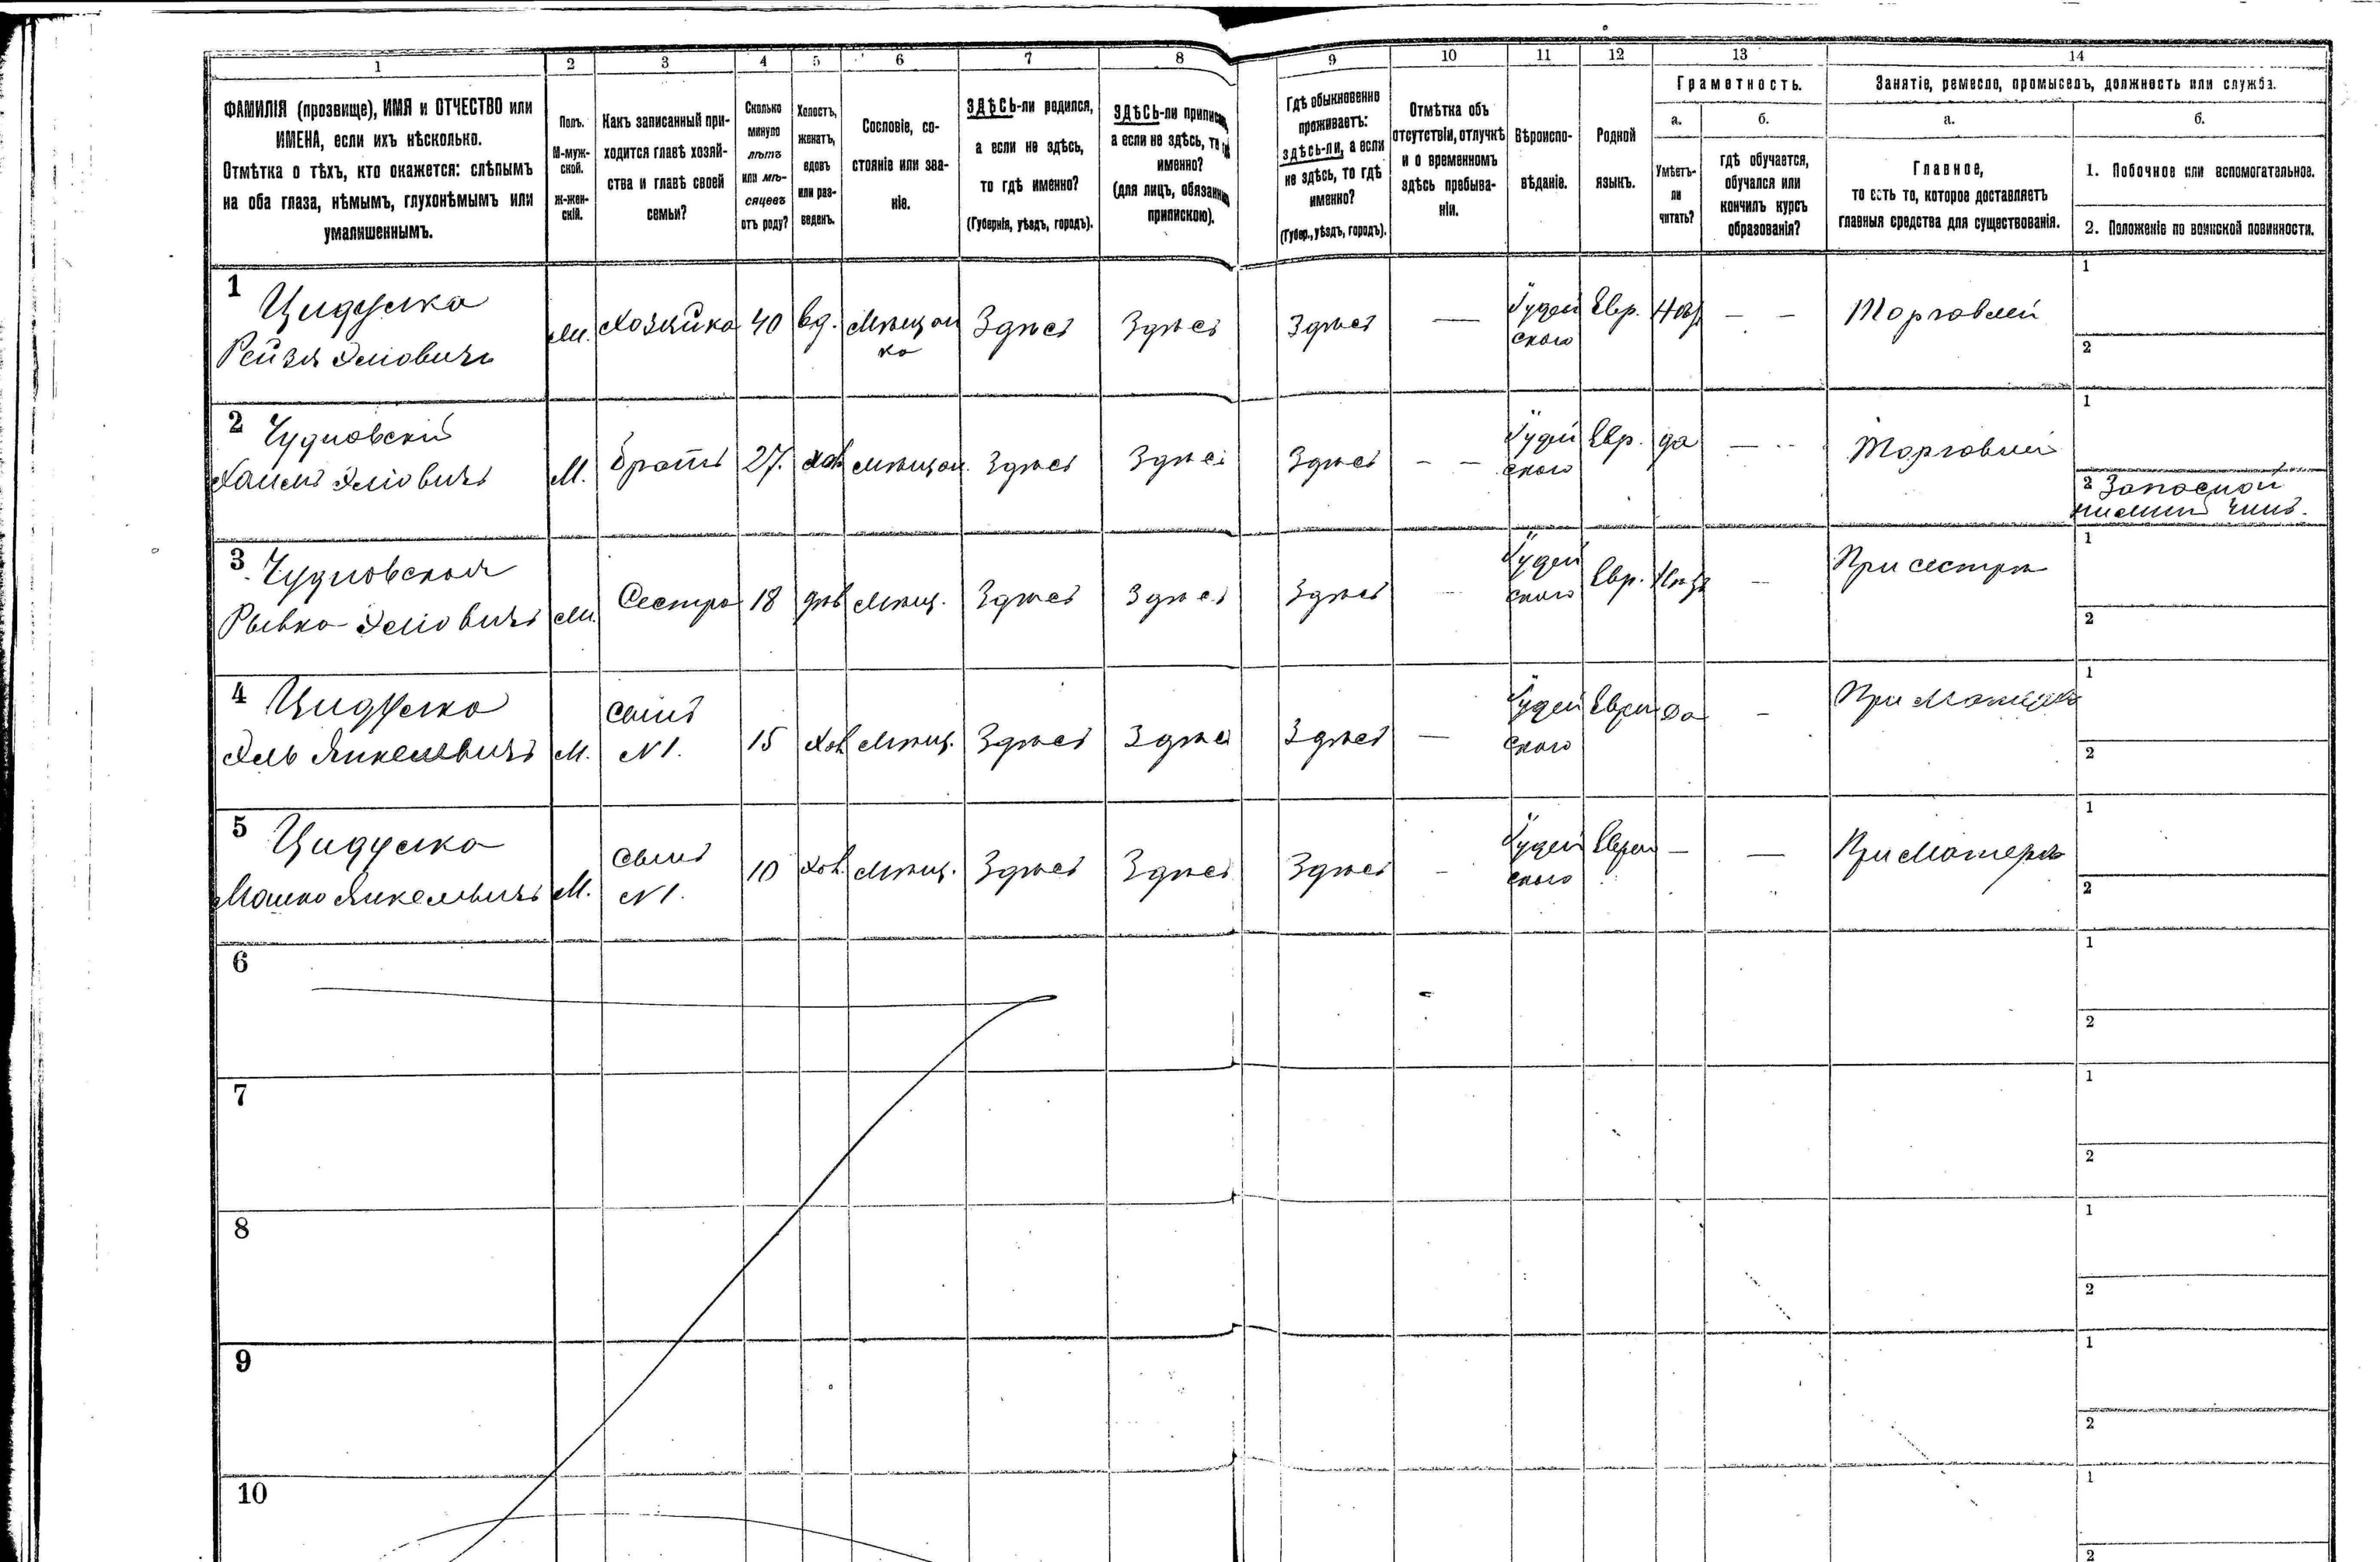 1 2 3 4 5 6 7 8 9 10 11 12 13 14
ФАМИЛІЯ (прозвище), ИМЯ и ОТЧЕСТВО или
ИМЕНА, если ихъ нѣсколько.
Отмѣтка о тѣхъ, кто окажется: слѣпымъ
на оба глаза, нѣмымъ, глухонѣмымъ или
умалишеннымъ.
Полъ.
М-муж-
ской.
Ж-жен-
скій.
Какъ записанный при-
ходится главѣ хозяй-
ства и главѣ своей
семьи?
Сколько
минуло
лѣтъ
или мѣ-
сяцевъ
отъ роду?
Холостъ,
женатъ,
вдовъ
или раз-
веденъ.
Сословіе, со-
стояніе или зва-
ніе.
ЗДѢСЬ-ли родился,
а если не здѣсь,
то гдѣ именно?
(Губернія, уѣздъ, городъ).
ЗДѢСЬ-ли приписанъ,
а если не здѣсь, то гдѣ
именно?
(для лицъ, обязанныхъ
припискою).
Гдѣ обыкновенно
проживаетъ:
здѣсь-ли, а если
не здѣсь, то гдѣ
именно?
(Губер., уѣздъ, городъ).
Отмѣтка объ
отсутствіи, отлучкѣ
и о временномъ
здѣсь пребыва-
ніи.
Вѣроиспо-
вѣданіе.
Родной
языкъ.
Грамотность.
а.
Умѣетъ-
ли
читать?
б.
гдѣ обучается,
обучался или
кончилъ курсъ
образованія?
Занятіе, ремесло, промыселъ, должность или служба.
а.
Главное,
то есть то, которое доставляетъ
главныя средства для существованія.
б.
1. Побочное или вспомогательное.
2. Положеніе по воинской повинности.
1 Цидулка
Рейзя Эліовичъ
Хозяйка 40 вд. Мѣщан
ка
Здѣсь Здѣсь Здѣсь — Іудей
ского
Евр. — — Торговлей
1
2
2 Чудновскій
Хаимъ Эліовичъ
М. Братъ 27. хол мѣщан. Здѣсь Здѣсь Здѣсь — — Іудей
ского
Евр. да — Торговлей
1
2 Запасной
нижній чинъ.
3 Чудновская
Рывка Эліовичъ
Сестра 18 дѣв Мѣщ. Здѣсь Здѣсь Здѣсь Іудей
ского
Евр. — При сестрѣ
1
2
4 Цидулка
Эль Янкелевичъ
М. Сынъ
N 1.
15 хол Мѣщ. Здѣсь Здѣсь Здѣсь — Іудей
ского
Евреи Да — При Матерѣ
1
2
5 Цидулка
Мошко Янкелевичъ
М. Сынъ
N 1.
10 хол. Мѣщ. Здѣсь Здѣсь Здѣсь — Іудей
ского
Евреи — — При Матерѣ
1
2
6
1
2
7
1
2
8
1
2
9
1
2
10
1
2